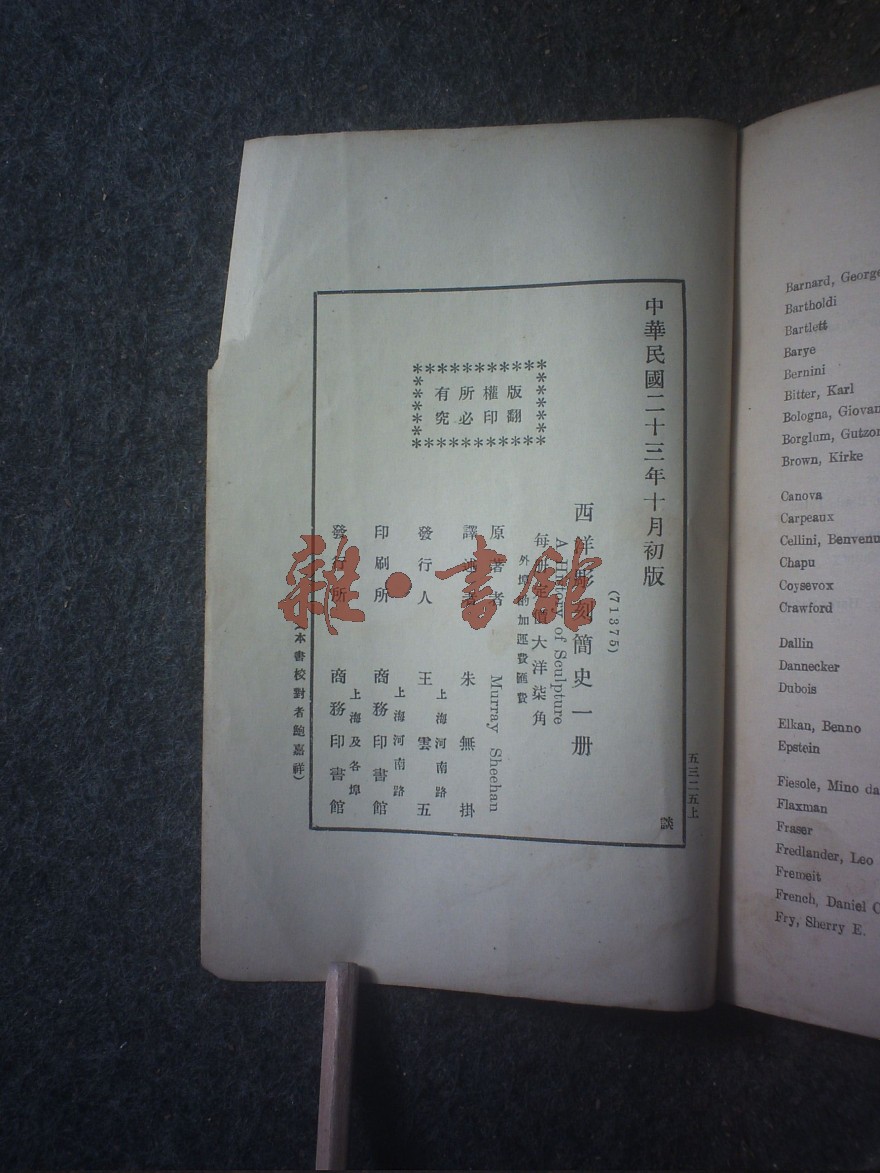 中華民國二十三年十月初版
(71375)
西洋彫刻簡史一册
A History of Sculpture
每册定價大洋柒角
外埠酌加運費匯費
原著者 Murray Sheehan
譯述者 朱無掛
發行人 王雲五
上海河南路
印刷所 商務印書館
上海河南路
發行所 商務印書館
上海及各埠
版權所有
翻印必究
(本書校對者鮑嘉祥)
五三二五上
談
雜·書館
Barnard, George
Bartholdi
Bartlett
Barye
Bernini
Bitter, Karl
Bologna, Giovan
Borglum, Gutzon
Brown, Kirke
Canova
Carpeaux
Cellini, Benvenu
Chapu
Coysevox
Crawford
Dallin
Dannecker
Dubois
Elkan, Benno
Epstein
Fiesole, Mino da
Flaxman
Fraser
Fredlander, Leo
Fremeit
French, Daniel C
Fry, Sherry E.